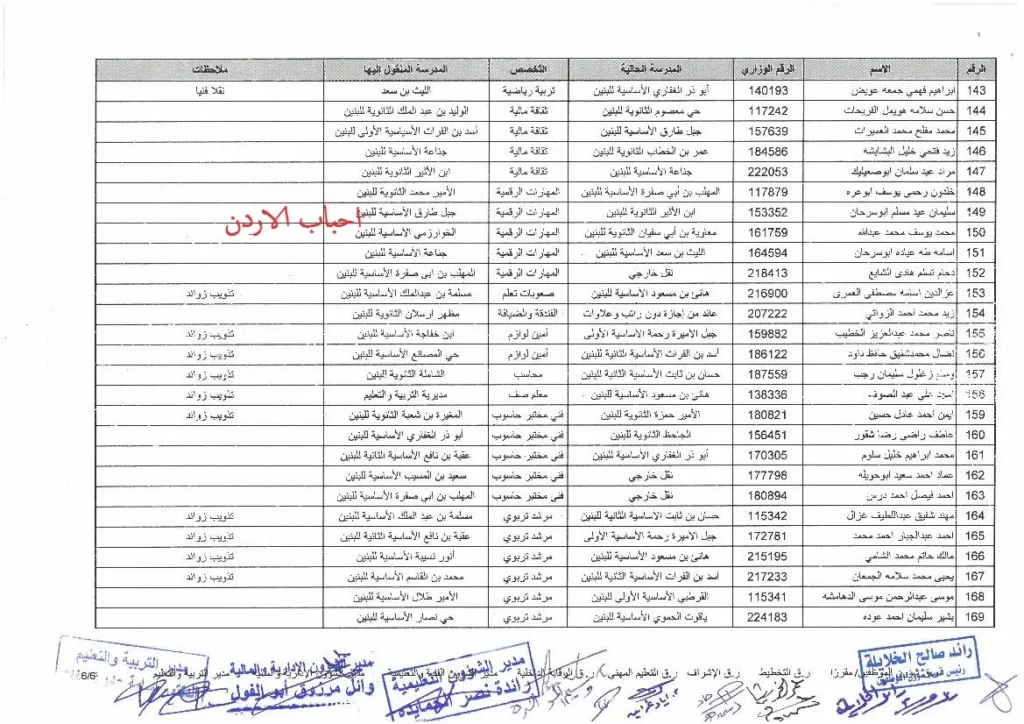 الرقم الاسم الرقم الوزاري المدرسة الحالية التخصص المدرسة المنقول اليها ملاحظات
143 ابراهيم فهمي جمعه عويض 140193 أبو ذر الغفاري الأساسية للبنين تربية رياضية الليث بن سعد نقلا فنيا
144 حسن سلامه هويمل الفريحات 117242 حي معصوم الثانوية للبنين ثقافة مالية الوليد بن عبد الملك الثانوية للبنين
145 محمد مفلح محمد العميرات 157639 جبل طارق الأساسية للبنين ثقافة مالية أسد بن الفرات الأساسية الأولى للبنين
146 زيد فتحي خليل البشابشه 184586 عمر بن الخطاب الثانوية للبنين ثقافة مالية جناعة الأساسية للبنين
147 مراد عيد سلمان ابوصعيليك 222053 جناعة الأساسية للبنين ثقافة مالية ابن الأثير الثانوية للبنين
148 خلدون رحمي يوسف ابوعره 117879 المهلب بن أبي صفرة الأساسية للبنين المهارات الرقمية الأمير محمد الثانوية للبنين
149 سليمان عيد مسلم ابوسرحان 153352 ابن الأثير الثانوية للبنين المهارات الرقمية جبل طارق الأساسية للبنين
احباب الاردن
150 محمد يوسف محمد عبدالله 161759 معاوية بن أبي سفيان الثانوية للبنين المهارات الرقمية الخوارزمي الأساسية للبنين
151 اسامه طه عياده ابوسرحان 164594 الليث بن سعد الأساسية للبنين المهارات الرقمية جناعة الأساسية للبنين
152 دحام تسلم هادي الشايع 218413 نقل خارجي المهارات الرقمية المهلب بن ابي صفرة الأساسية للبنين
153 عزالدين اسامه مصطفى العمرى 216900 هانئ بن مسعود الأساسية للبنين صعوبات تعلم مسلمة بن عبدالملك الأساسية للبنين تذويب زوائد
154 زيد محمد احمد الزواتي 207222 عائد من إجازة دون راتب وعلاوات الفندقة والضيافة مظهر ارسلان الثانوية للبنين
155 ناصر محمد عبدالعزيز الخطيب 159882 جبل الاميرة رحمة الاساسية الأولى أمين لوازم ابن خفاجة الأساسية للبنين تذويب زوائد
156 نضال محمدشفيق حافظ داود 186122 أسد بن الفرات الأساسية الثانية للبنين أمين لوازم حي المصانع الأساسية للبنين تذويب زوائد
157 وسام زغلول سليمان رجب 187559 حسان بن ثابت الأساسية الثانية للبنين محاسب الشاملة الثانوية للبنين تذويب زوائد
158 علي عبد الصوف 138336 هانئ بن مسعود الأساسية للبنين معلم صف مديرية التربية والتعليم تذويب زوائد
159 ايمن احمد عادل حسين 180821 الأمير حمزة الثانوية للبنين فني مختبر حاسوب المغيرة بن شعبة الثانوية للبنين تذويب زوائد
160 عاطف راضي رضا شقور 156451 الجاحظ الثانوية للبنين فني مختبر حاسوب أبو ذر الغفاري الأساسية للبنين
161 محمد ابراهيم خليل سلوم 170305 أبو ذر الغفاري الأساسية للبنين فني مختبر حاسوب عقبة بن نافع الأساسية الثانية للبنين
162 عماد احمد سعيد ابوحويله 177798 نقل خارجي فني مختبر حاسوب سعيد بن المسيب الأساسية للبنين
163 احمد فيصل احمد درس 180894 نقل خارجي فني مختبر حاسوب المهلب بن ابي صفرة الأساسية للبنين
164 مهند شفيق عبداللطيف غزال 115342 حسان بن ثابت الاساسية الثانية للبنين مرشد تربوي مسلمة بن عبد الملك الأساسية للبنين تذويب زوائد
165 احمد عبدالجبار احمد محمد 172781 جبل الاميرة رحمة الأساسية الأولى مرشد تربوي عقبة بن نافع الأساسية الثانية للبنين تذويب زوائد
166 مالك حاتم محمد الشامي 215195 هانئ بن مسعود الأساسية للبنين مرشد تربوي أنور نسيبة الأساسية للبنين تذويب زوائد
167 يحيى محمد سلامه الجمعان 217233 اسد بن الفرات الأساسية الثانية للبنين مرشد تربوي محمد بن القاسم الأساسية للبنين تذويب زوائد
168 موسى عبدالرحمن موسى الدهامشه 115341 القرطبي الأساسية الأولى للبنين مرشد تربوي الأمير طلال الأساسية للبنين
169 بشير سليمان احمد عوده 224183 ياقوت الحموي الأساسية للبنين مرشد تربوي حي نصار الأساسية للبنين
رائد صالح الخلايلة
رئيس قسم شؤون الموظفين
مدير الشؤون التعليمية
رائدة نصر الحمايده
مدير الشؤون الإدارية والمالية
وائل مرزوق أبو الفول
مدير التربية والتعليم
شؤون الموظفين/ مقررا ر.ق التخطيط ر.ق الإشراف ر.ق التعليم المهني ر.ق الرقابة الداخلية مدير الشؤون الفنية والتعليمية مدير الشؤون الادارية والمالية مدير التربية والتعليم 6/6